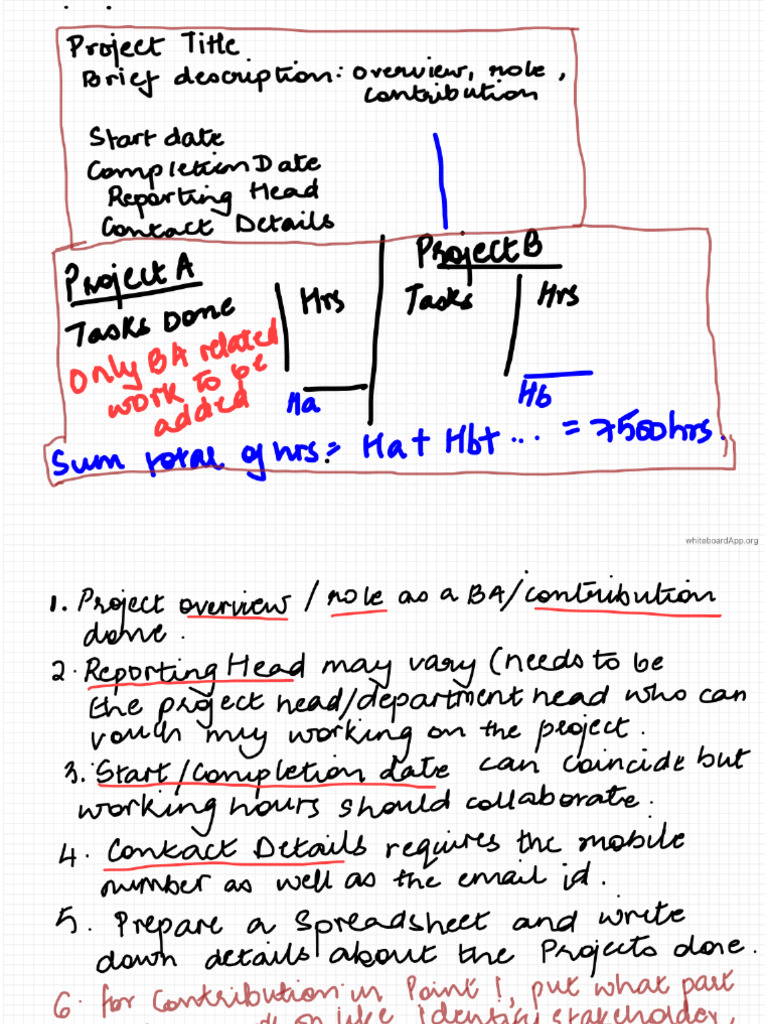 Project Title
Brief description: overview, role,
contribution
Start date
Completion Date
Reporting Head
Contact Details
Project A
Project B
Tasks Done
Hrs
Tasks
Hrs
Only BA related
work to be
added
Ha
Hb
Sum total of hrs: Ha + Hb + ... = 7500 hrs.
whiteboardApp.org
1. Project overview / role as a BA/contribution
done.
2. Reporting Head may vary (needs to be
the project head/department head who can
vouch my working on the project.
3. Start/Completion date can coincide but
working hours should collaborate.
4. Contact Details requires the mobile
number as well as the email id.
5. Prepare a Spreadsheet and write
down details about the Projects done.
6. for contribution in Point 1, put what part
like identify stakeholder,